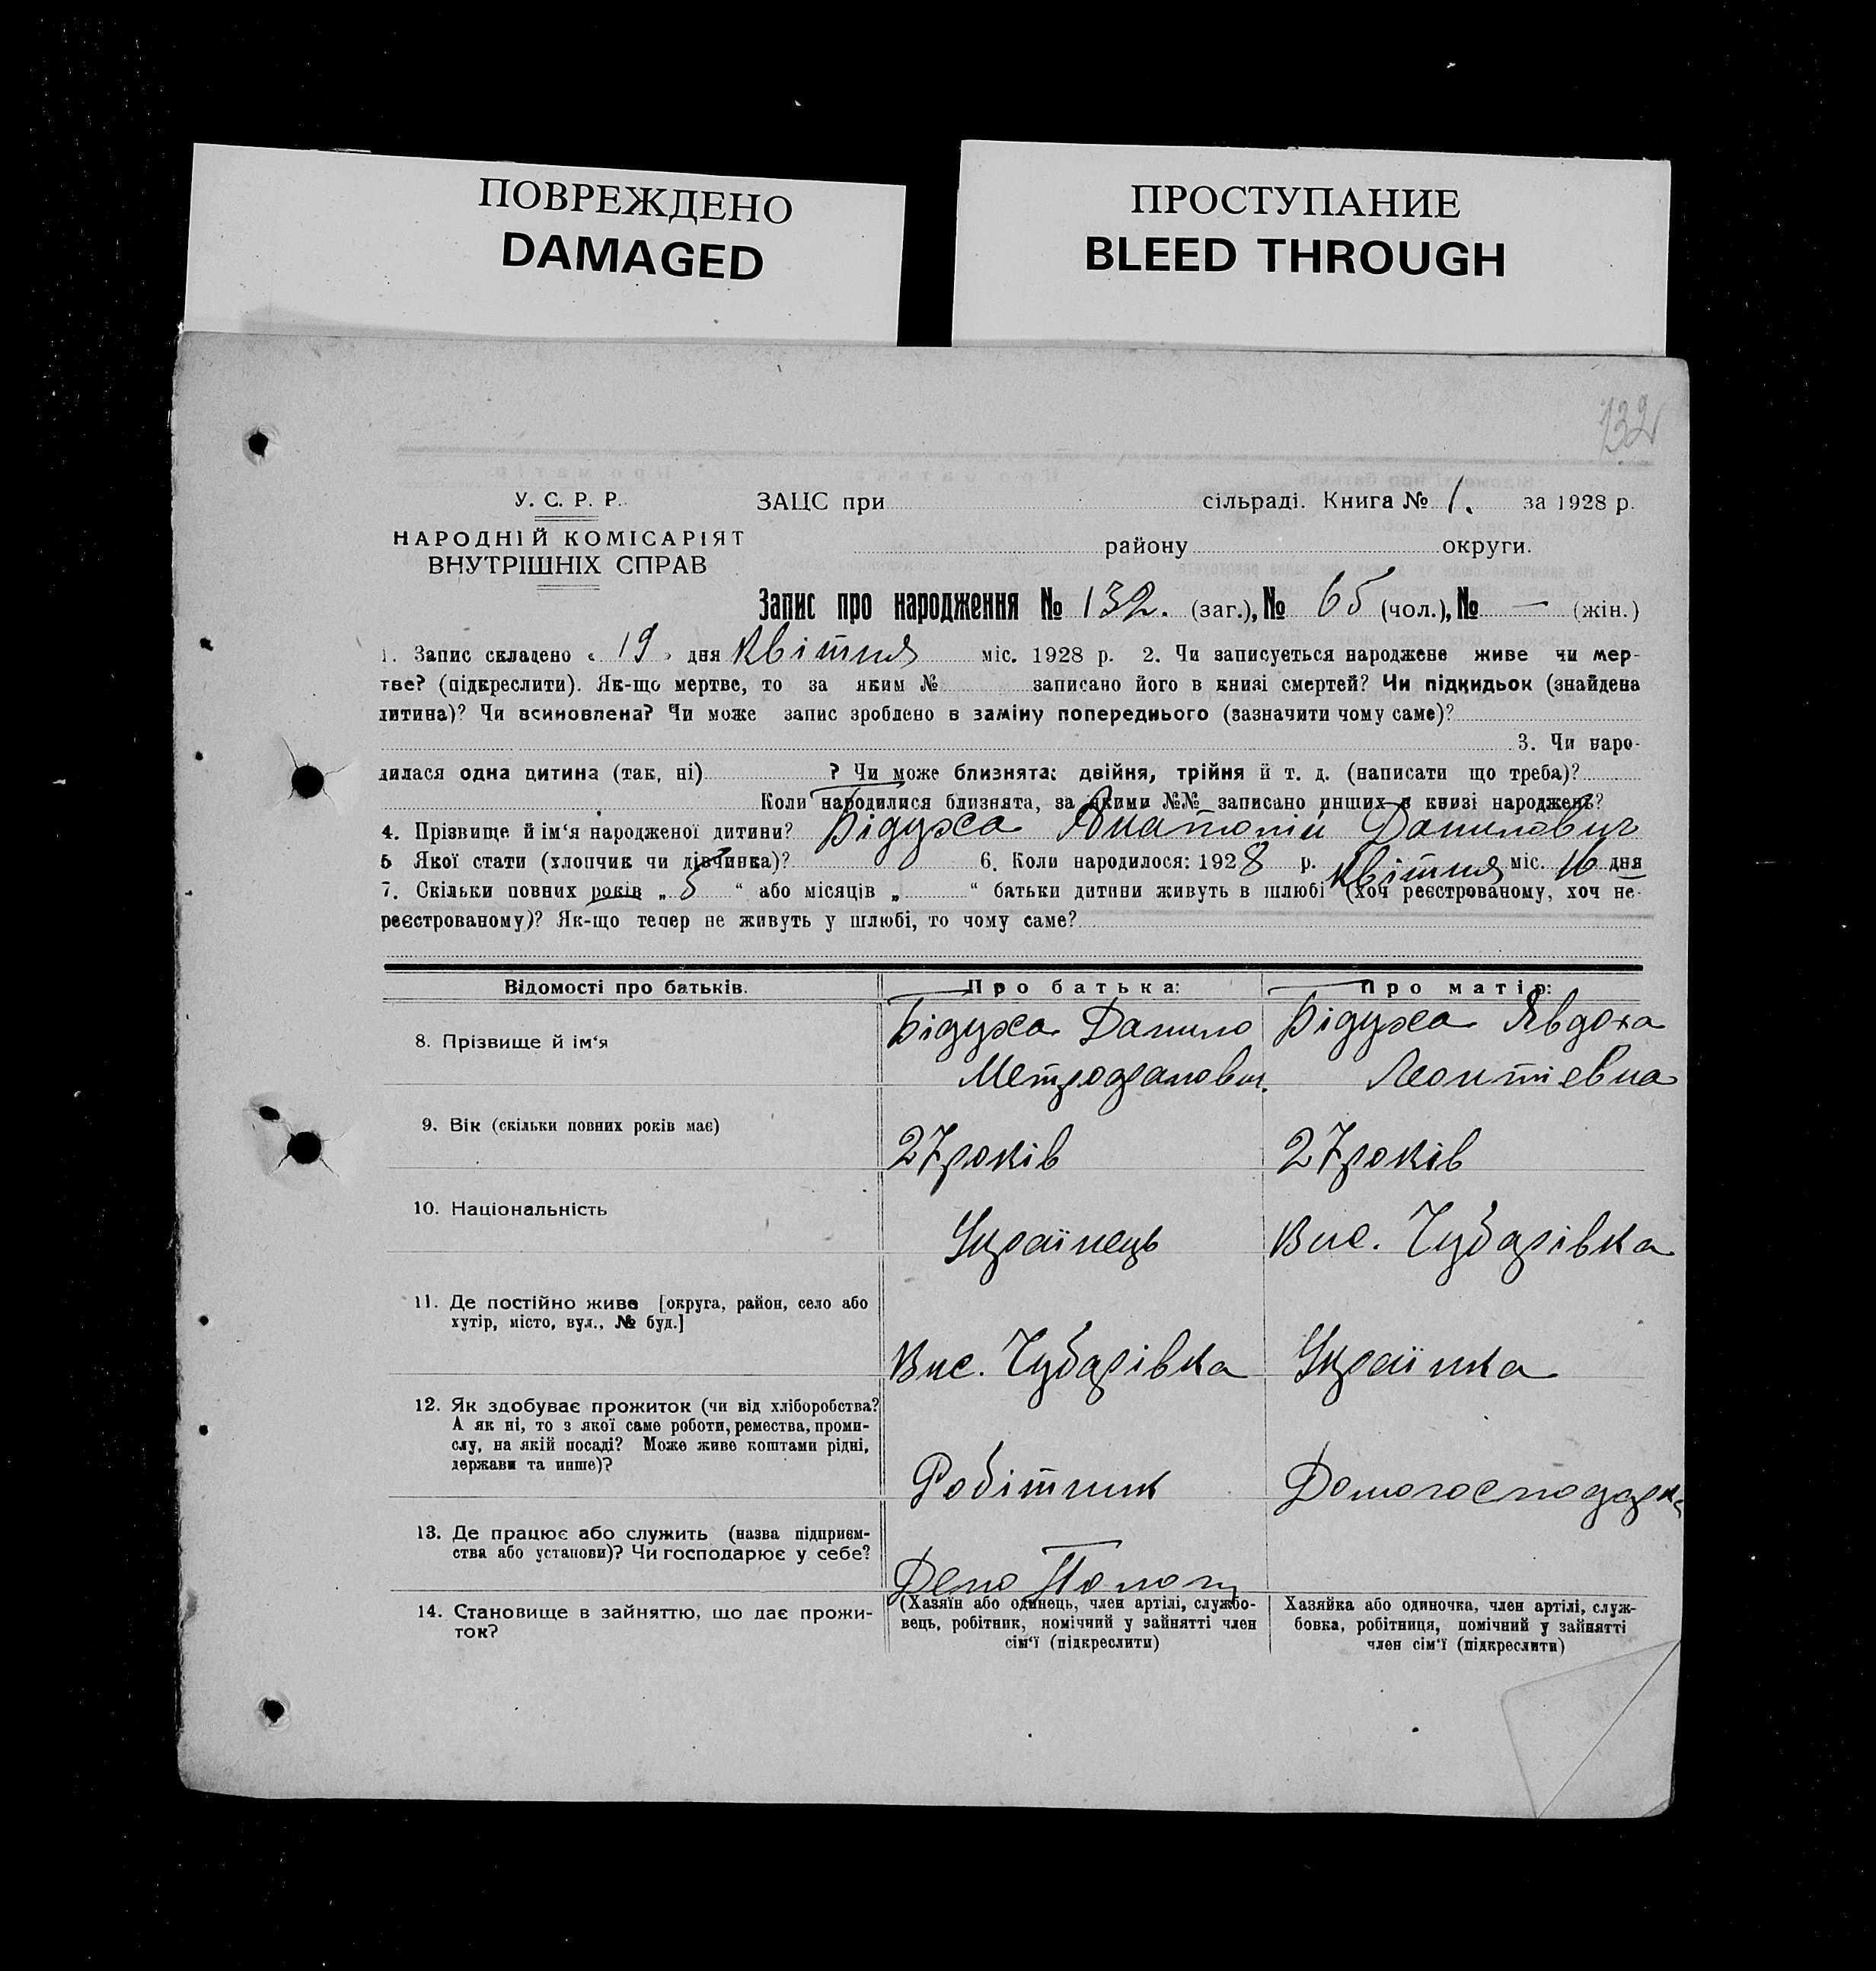 ПОВРЕЖДЕНО
DAMAGED
ПРОСТУПАНИЕ
BLEED THROUGH
132
У. С. Р. Р.
НАРОДНІЙ КОМІСАРІЯТ
ВНУТРІШНІХ СПРАВ
ЗАЦС при сільраді. Книга № 1. за 1928 р.
району округи.
Запис про народження № 132. (заг.), № 65 (чол.), № — (жін.)
1. Запис складено « 19 » дня Квітня міс. 1928 р. 2. Чи записується народжене живе чи мер-
тве? (підкреслити). Як-що мертве, то за яким № записано його в книзі смертей? Чи підкидьок (знайдена
дитина)? Чи всиновлена? Чи може запис зроблено в заміну попереднього (зазначити чому саме)?
3. Чи наро-
дилася одна дитина (так, ні) ? Чи може близнята: двійня, трійня й т. д. (написати що треба)?
Коли народилися близнята, за якими №№ записано инших в книзі народжень?
4. Прізвище й ім‘я народженої дитини? Бідуха Анатолій Данилович
5 Якої стати (хлопчик чи дівчинка)? 6. Коли народилося: 1928 р. Квітня міс. 16 дня
7. Скільки повних років „ 5 “ або місяців „ “ батьки дитини живуть в шлюбі (хоч реєстрованому, хоч не-
реєстрованому)? Як-що тепер не живуть у шлюбі, то чому саме?
Відомості про батьків. Про батька: Про матір:
8. Прізвище й ім‘я Бідуха Данило Бідуха Явдоха
Метрофанович. Леонтієвна
9. Вік (скільки повних років має) 27 років 27 років
10. Національність Українець Вис. Чубарівка
11. Де постійно живе [округа, район, село або
хутір, місто, вул., № буд.]
Вис. Чубарівка Українка
12. Як здобуває прожиток (чи від хліборобства?
А як ні, то з якої саме роботи, ремества, проми-
слу, на якій посаді? Може живе коштами рідні,
держави та инше)?
Робітник Домогосподарка
13. Де працює або служить (назва підприєм-
ства або установи)? Чи господарює у себе?
Депо Пологи
14. Становище в зайняттю, що дає прожи-
ток?
(Хазяїн або одинець, член артілі, службо-
вець, робітник, помічний у зайнятті член
сім‘ї (підкреслити)
Хазяйка або одиночка, член артілі, служ-
бовка, робітниця, помічний у зайнятті
член сім‘ї (підкреслити)